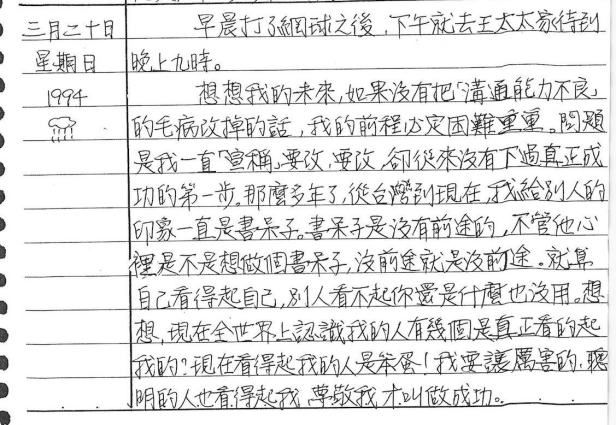 三月二十日 早晨打了網球之後,下午就去王太太家待到
星期日 晚上九時。
1994 想想我的未來,如果沒有把「溝通能力不良」
的毛病改掉的話,我的前程必定困難重重。問題
是我一直「宣稱」要改,要改,卻從來沒有下過真正成
功的第一步。那麼多年了,從台灣到現在,我給別人的
印象一直是書呆子。書呆子是沒有前途的,不管他心
裡是不是想做個書呆子,沒前途就是沒前途。就算
自己看得起自己,別人看不起你還是什麼也沒用。想
想,現在全世界上認識我的人有幾個是真正看的起
我的?現在看得起我的人是笨蛋!我要讓厲害的,聰
明的人也看得起我,尊敬我才叫做成功。